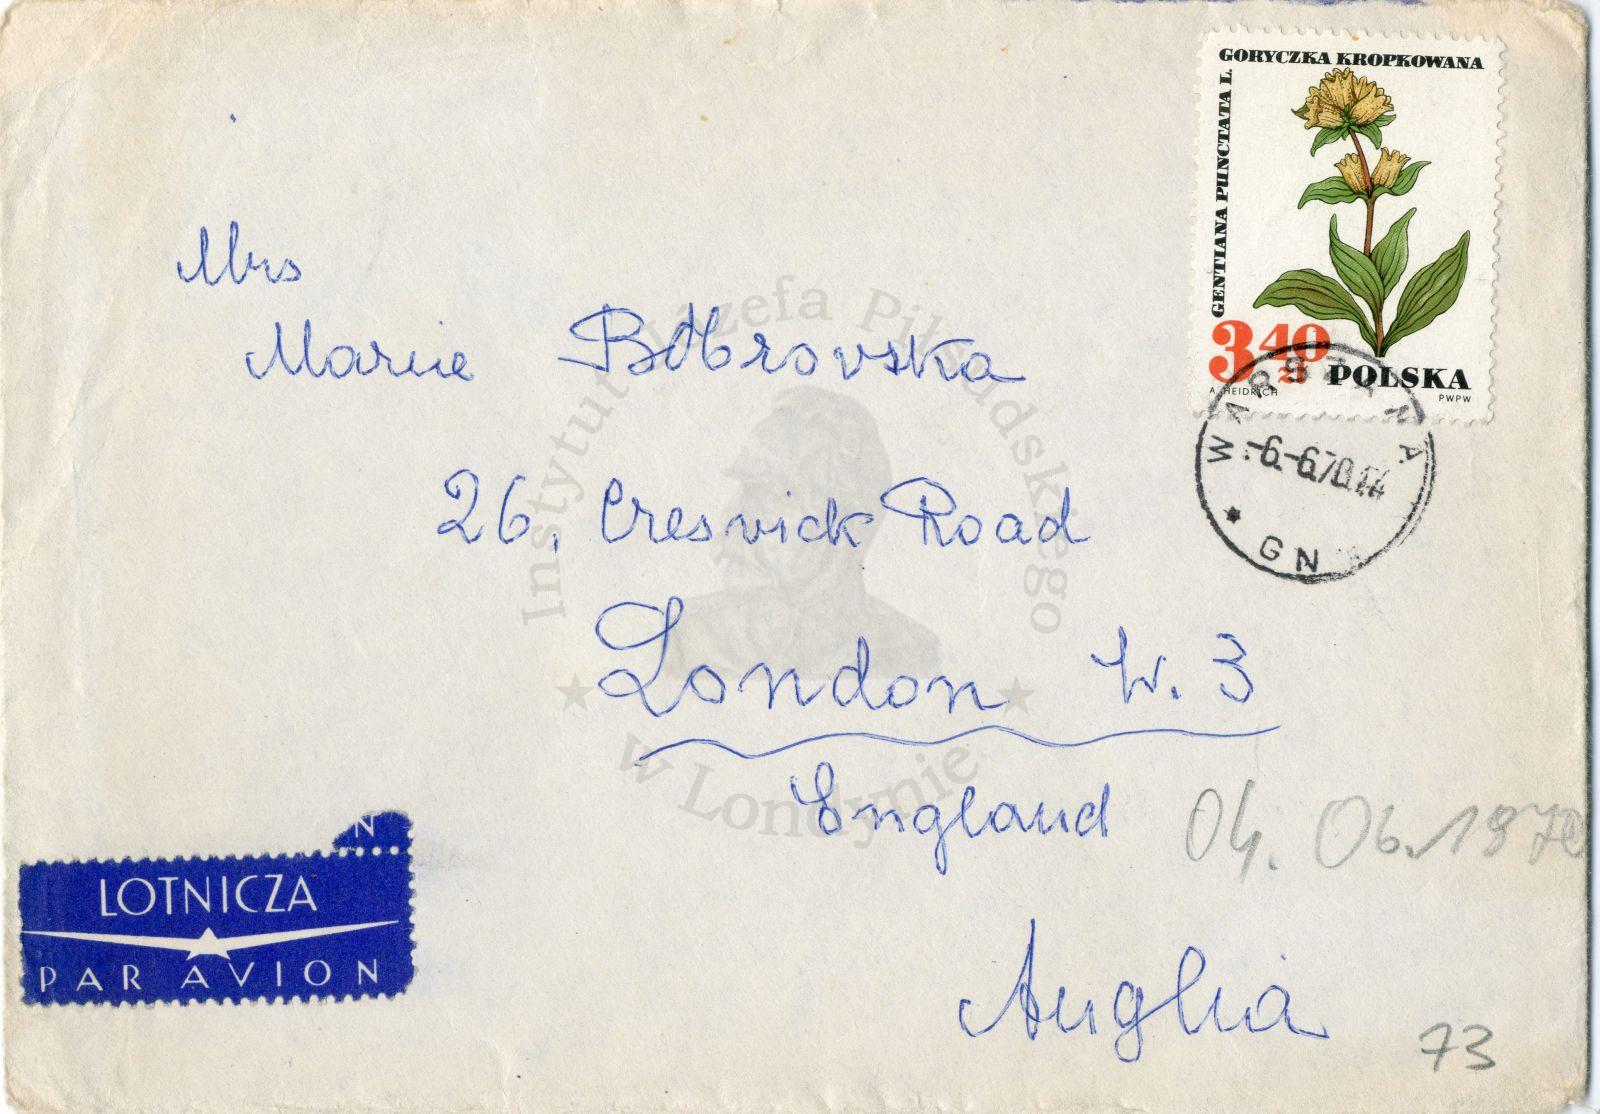 GORYCZKA KROPKOWANA
GENTIANA PUNCTATA L.
3.40 zł
POLSKA
A. HEIDRICH
PWPW
WARSZAWA
-6.-6.70.
GN
Mrs
Marie Bobrovska
26, Cresvick Road
London W. 3
England
04. 06. 1970
Anglia
73
N
LOTNICZA
PAR AVION
Instytut Józefa Piłsudskiego
w Londynie